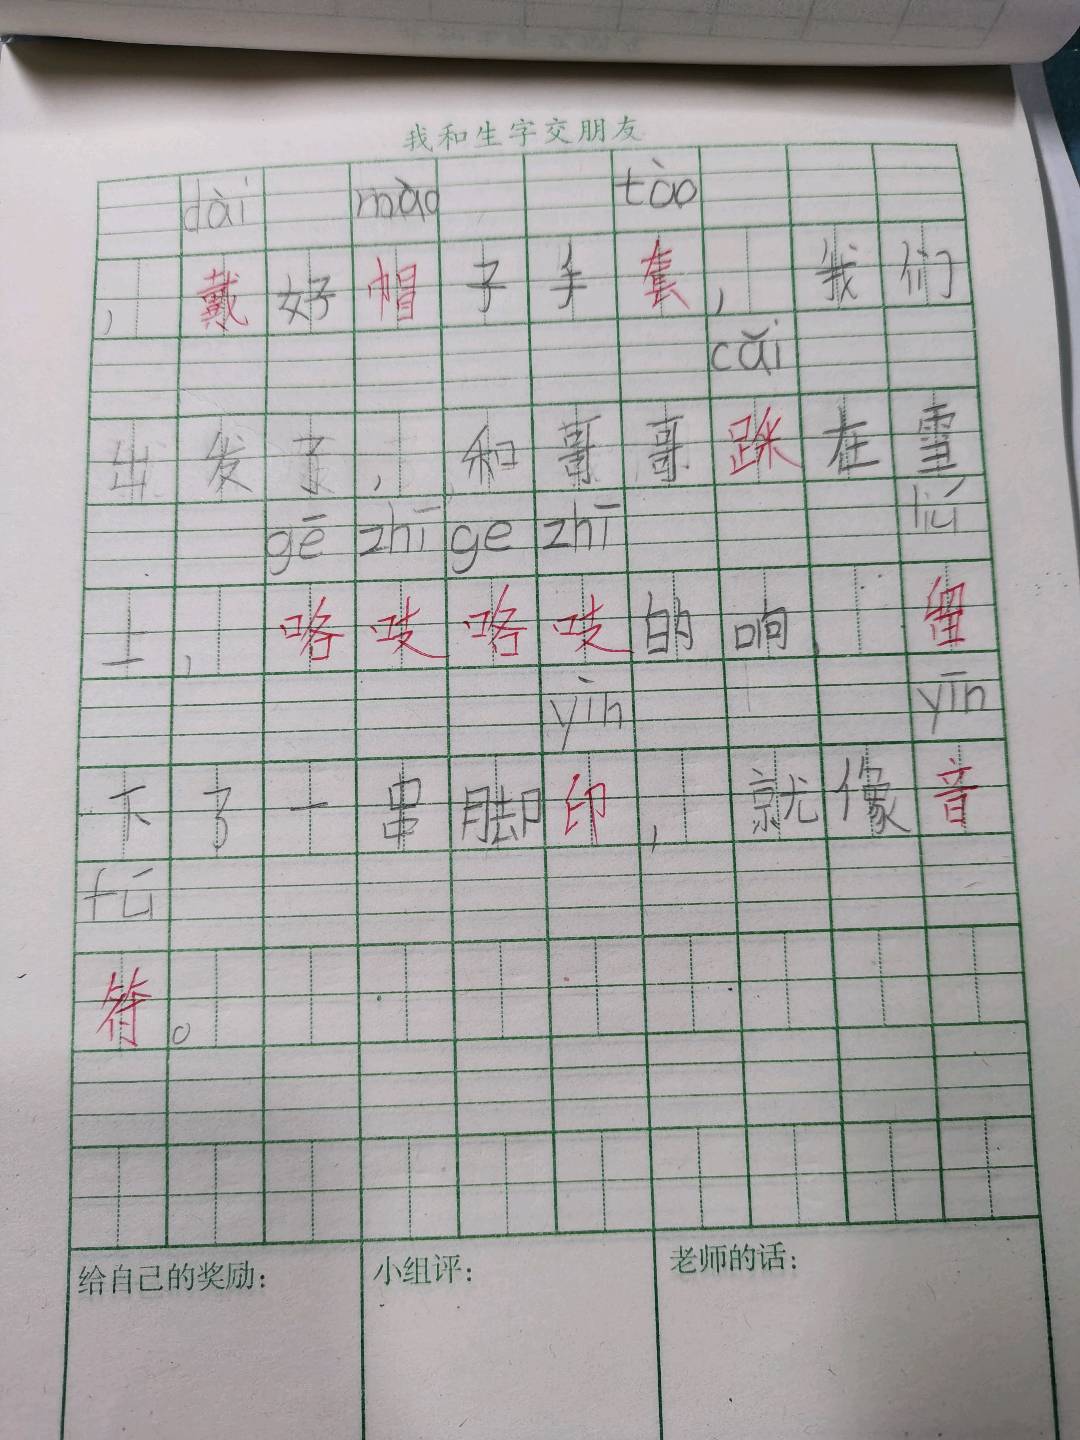 我和生字交朋友
dài mào tào
，戴好帽子手套，我们
cǎi
出发了，和哥哥踩在雪
gē zhī ge zhī liú
上，咯吱咯吱的响，留
yìn yīn
下了一串脚印，就像音
fú
符。
给自己的奖励： 小组评： 老师的话：